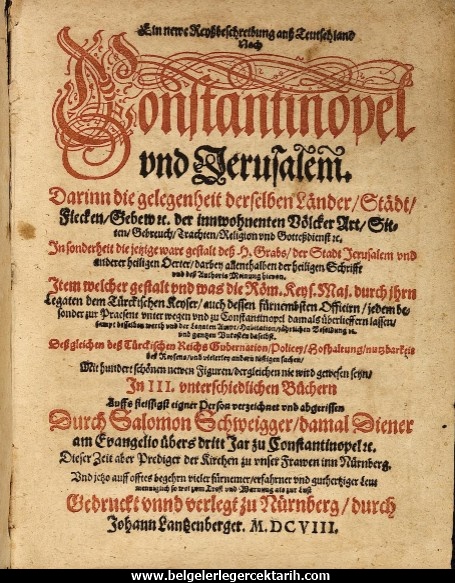 Ein newe Reyßbeschreibung auß Teutschland
Nach
Constantinopel
vnd Jerusalem.
Darinn die gelegenheit derselben Länder/Städt/
Flecken/Gebew ꝛc. der innwohnenten Völcker Art/Sit-
ten/Gebreuch/Trachten/Religion vnd Gottesdienst ꝛc.
In sonderheit die jetzige ware gestalt deß H. Grabs/der Stadt Jerusalem vnd
anderer heiligen Oerter/darbey allenthalben der heiligen Schrifft
vnd deß Authoris Meinung hievon.
Item welcher gestalt vnd was die Röm. Keys. Maj. durch jhrn
Legaten dem Türckischen Keyser/auch dessen fürnembsten Officirn/jedem be-
sonder zur Praesent vnter wegen vnd zu Constantinopel damals überlieffern lassen/
sampt desselben werth vnd der Legaten Ampt/Habitation/
vnd gantzen
Deßgleichen deß Türckischen Reichs Gubernation/Policey/Hofhaltung/nutzbarkeit
deß Reysens/vnd vielerley andern lüstigen sachen/
Mit hundert schönen newen Figuren/dergleichen nie wird gewesen seyn/
In III. vnterschiedlichen Büchern
Auffs fleissigst eigner Person verzeichnet vnd abgerissen
Durch Salomon Schweigger/damal Diener
am Evangelio übers dritt Jar zu Constantinopel ꝛc.
Dieser Zeit aber Prediger der Kirchen zu vnser Frawen inn Nürnberg.
Vnd jetzo auff offtes begehrn vieler fürnemer/erfahrner vnd guthertziger Leut
so wol zum Trost vnd Warnung als zur Lust
Gedruckt vnnd verlegt zu Nürnberg/durch
Johann Lantzenberger. M.DCVIII.
www.belgelerlegercektarih.com